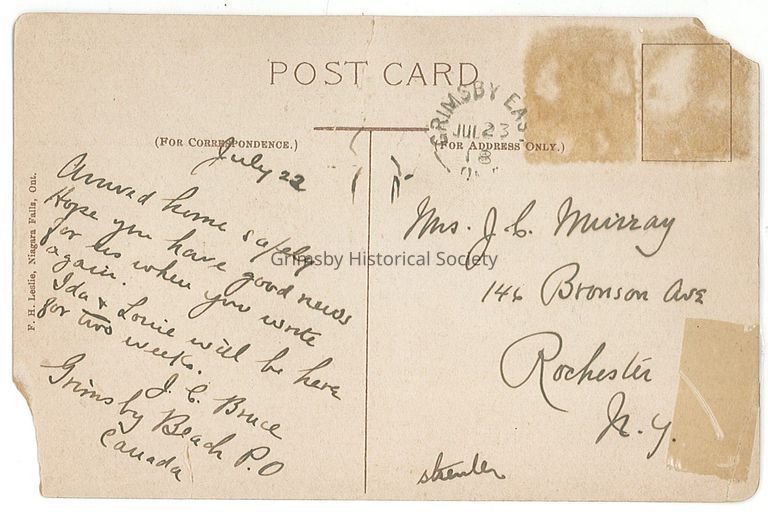 POST CARD
GRIMSBY EAS
JUL 23
(FOR CORRESPONDENCE.)
(FOR ADDRESS ONLY.)
July 22
Arrived home safely
Hope you have good news
for us when you write
again.
Ida & Louie will be here
for two weeks.
J. C. Bruce
Grimsby Beach P.O
Canada
Mrs. J. C. Murray
146 Bronson Ave
Rochester
N. Y.
F. H. Leslie, Niagara Falls, Ont.
Grimsby Historical Society